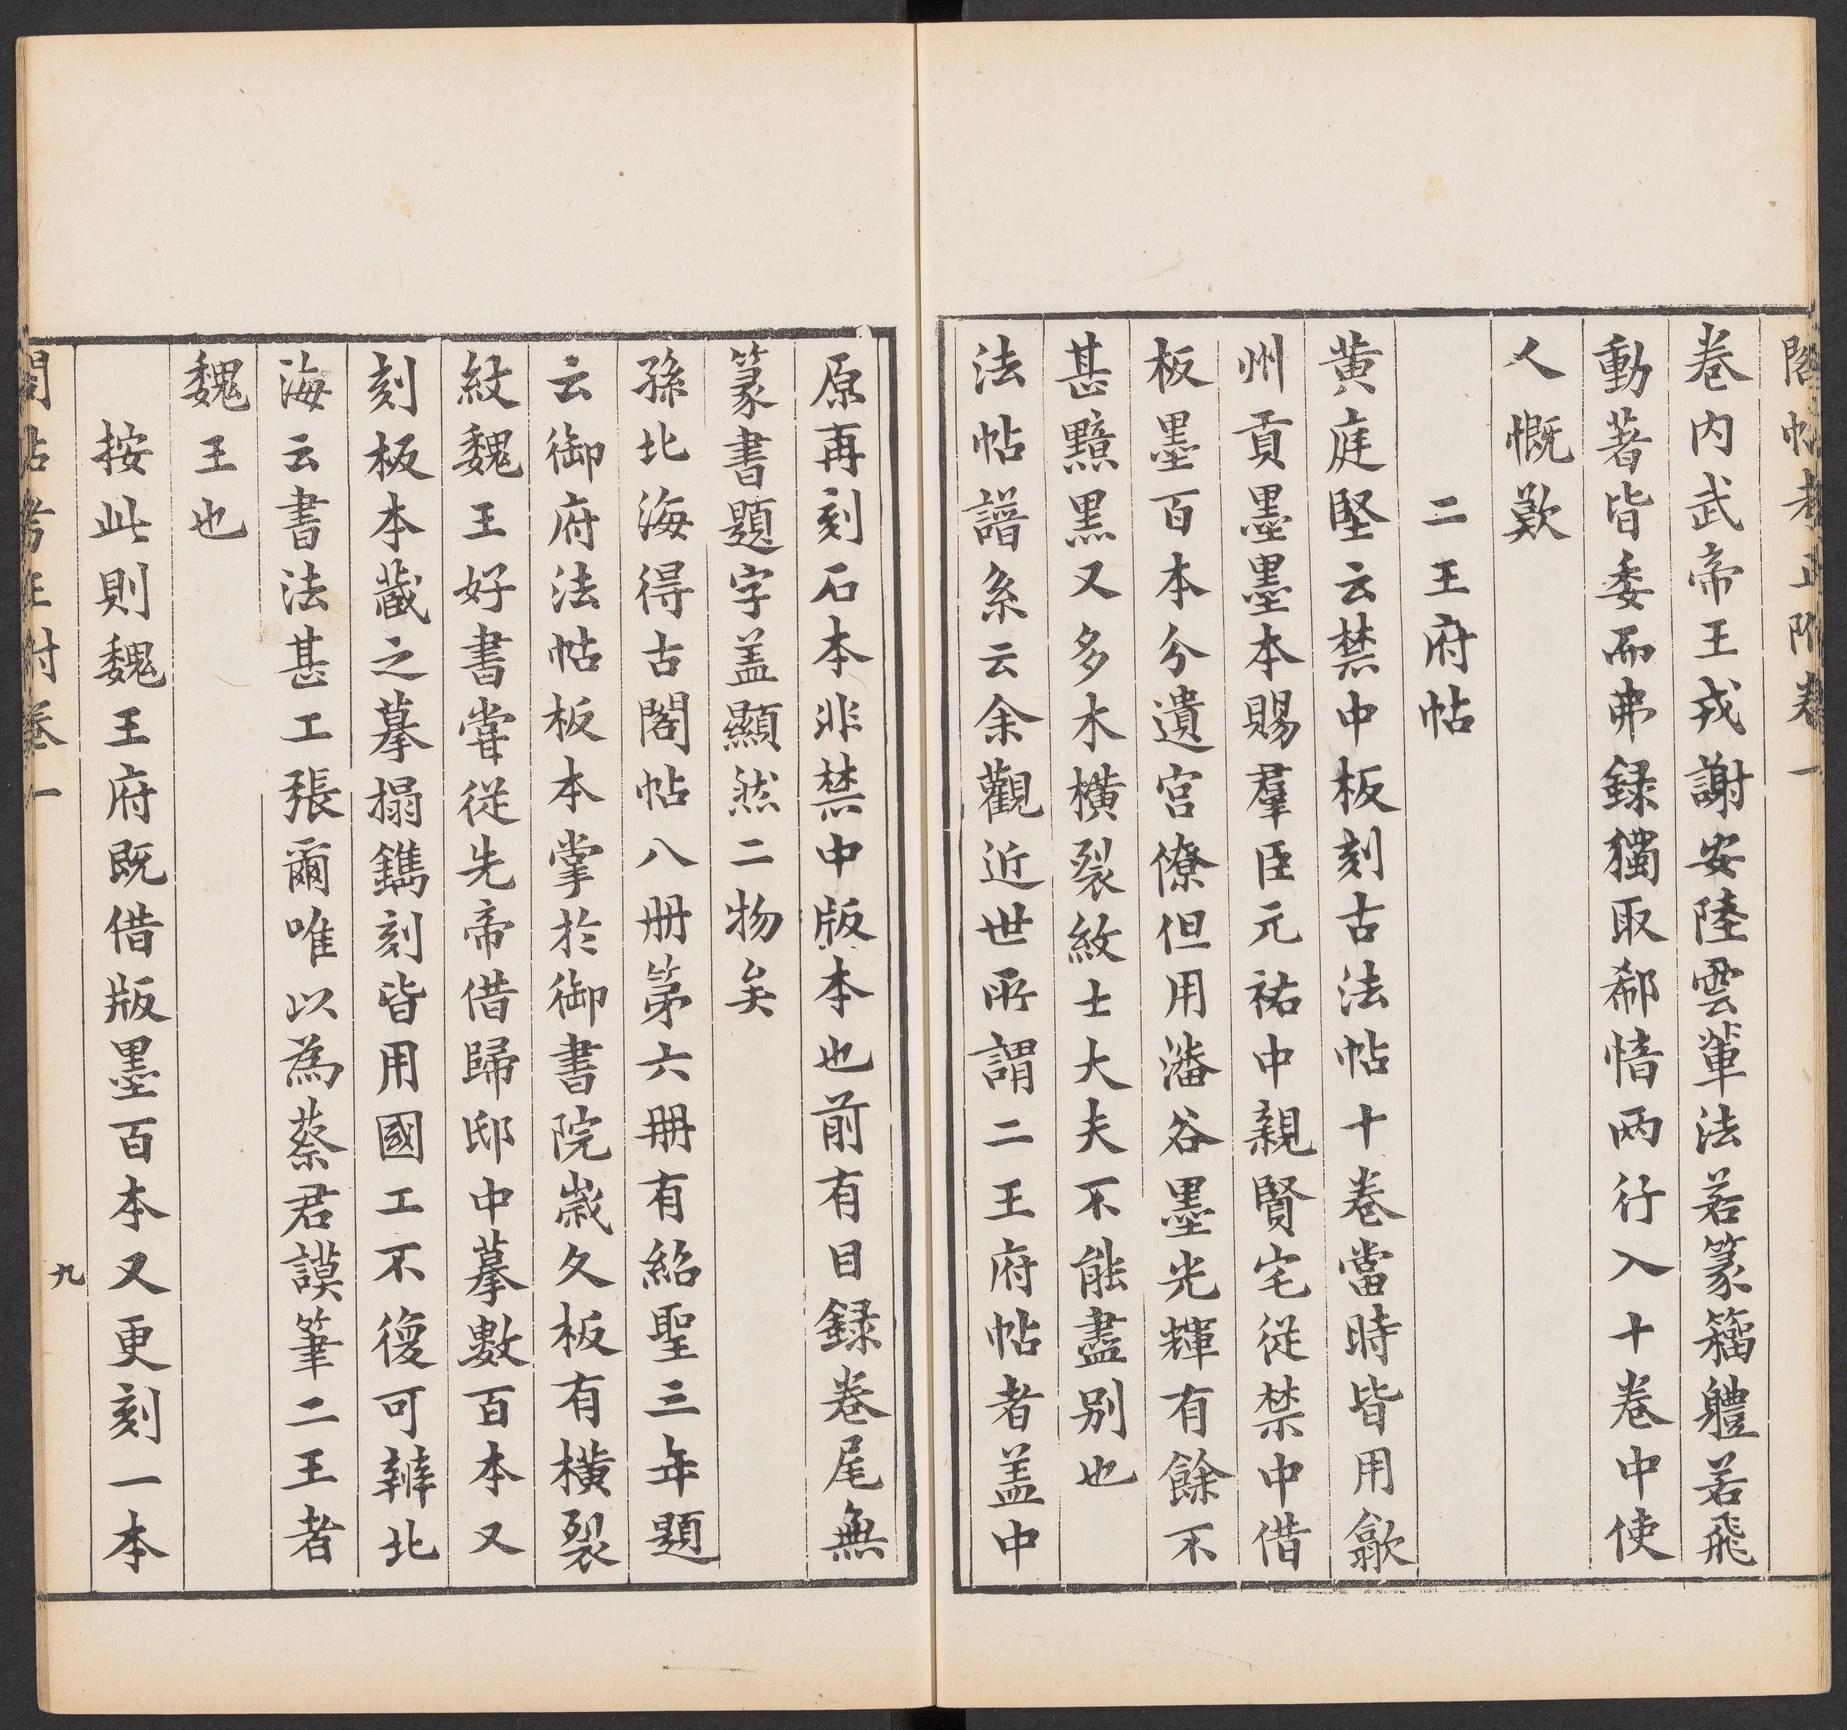 閣帖考正附卷一
卷内武帝王戎謝安陸雲輩法若篆籀軆若飛
動著皆委而弗録獨取郗愔兩行入十卷中使
人慨歎
二王府帖
黄庭堅云禁中板刻古法帖十卷當時皆用歙
州貢墨墨本賜羣臣元祐中親賢宅従禁中借
板墨百本分遺宫僚但用潘谷墨光輝有餘不
甚黟黒又多木横裂紋士大夫不能盡别也
法帖譜系云余觀近世所謂二王府帖者盖中
原再刻石本非禁中版本也前有目録卷尾無
篆書題字盖顯然二物矣
孫北海得古閣帖八冊第六冊有紹聖三年題
云御府法帖板本掌於御書院嵗久板有横裂
紋魏王好書嘗従先帝借歸邸中摹數百本又
刻板本藏之摹搨鐫刻皆用國工不復可辨北
海云書法甚工張爾唯以為蔡君謨筆二王者
魏王也
按此則魏王府既借版墨百本又更刻一本
閣帖考正附卷一
九